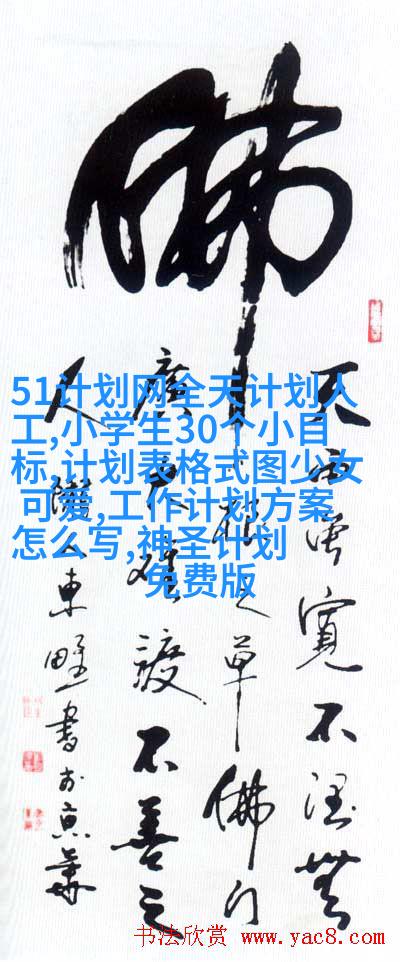 佛
天雨虽宽不润无
根之草佛门
广大难渡不善之
人
东野书于京华
51计划网全天计划人
工,小学生30个小目
标,计划表格式图少女
可爱,工作计划方案
怎么写,神圣计划
免费版
书法欣赏 www.yac8.com